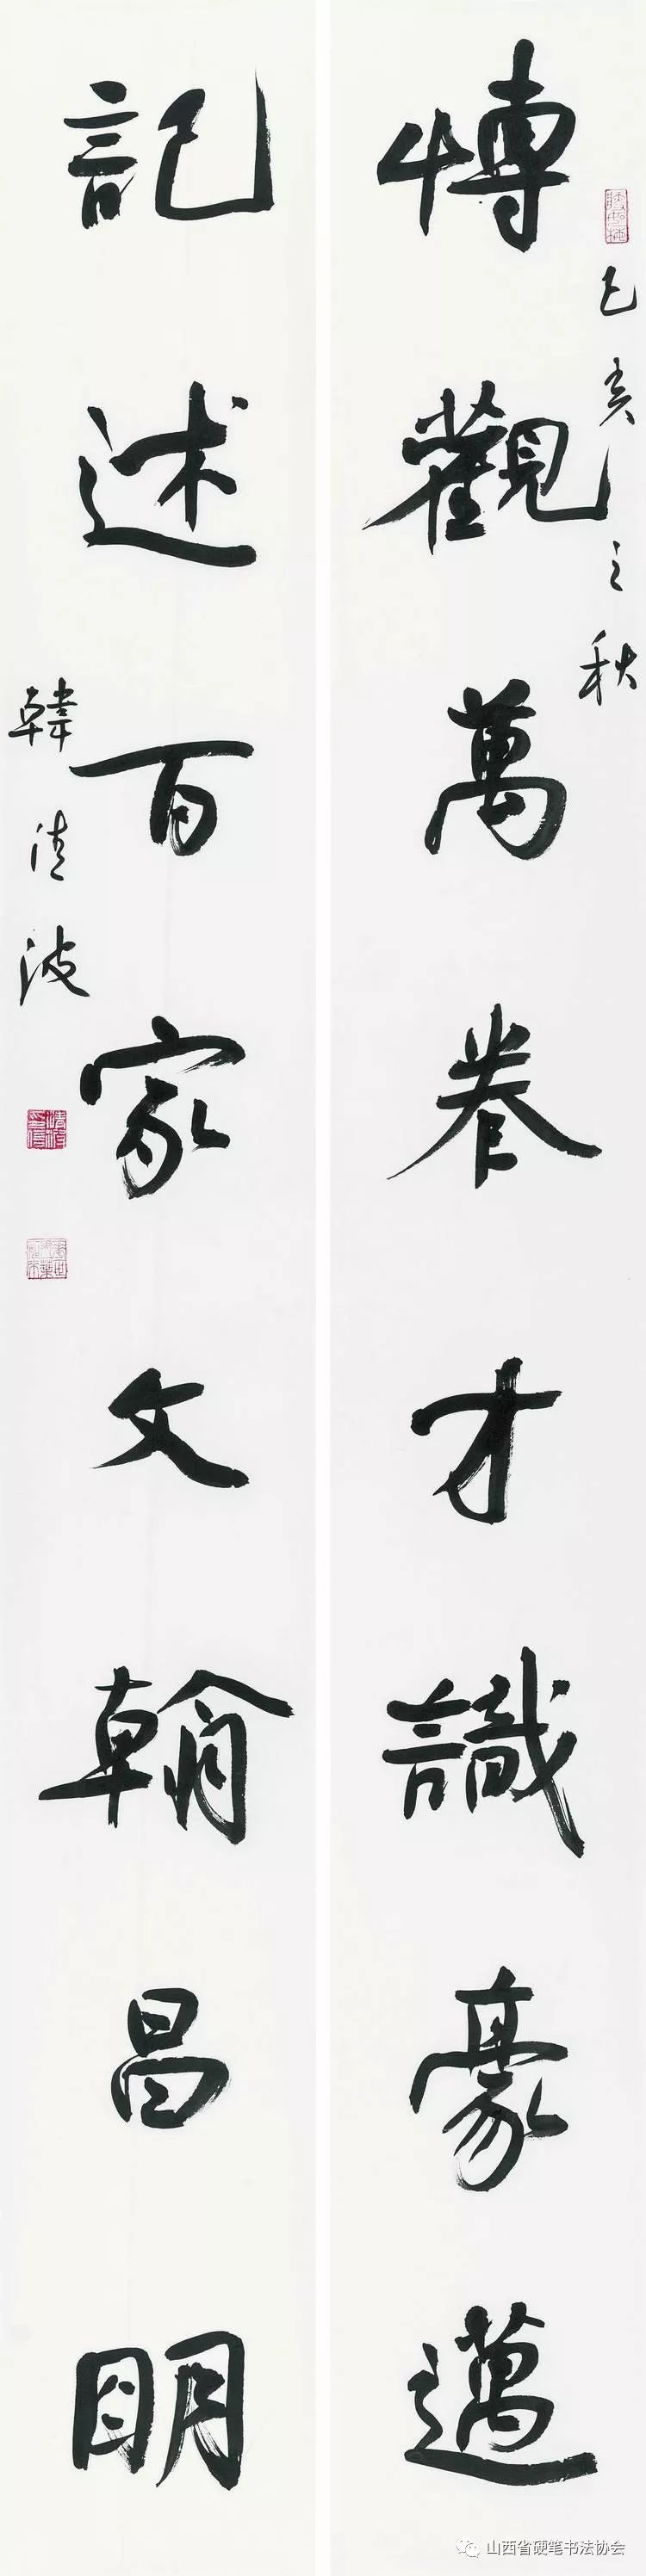 己亥之秋
博觀萬卷才識豪邁
記述百家文翰昌明
韓清波
山西省硬笔书法协会